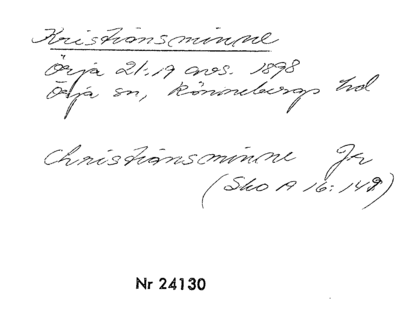 Kristiansminne
Örja 21:19 avs. 1898
Örja sn, Rönnebergs hd
Christiansminne Jr
(Sko A 16: 148)
Nr 24130